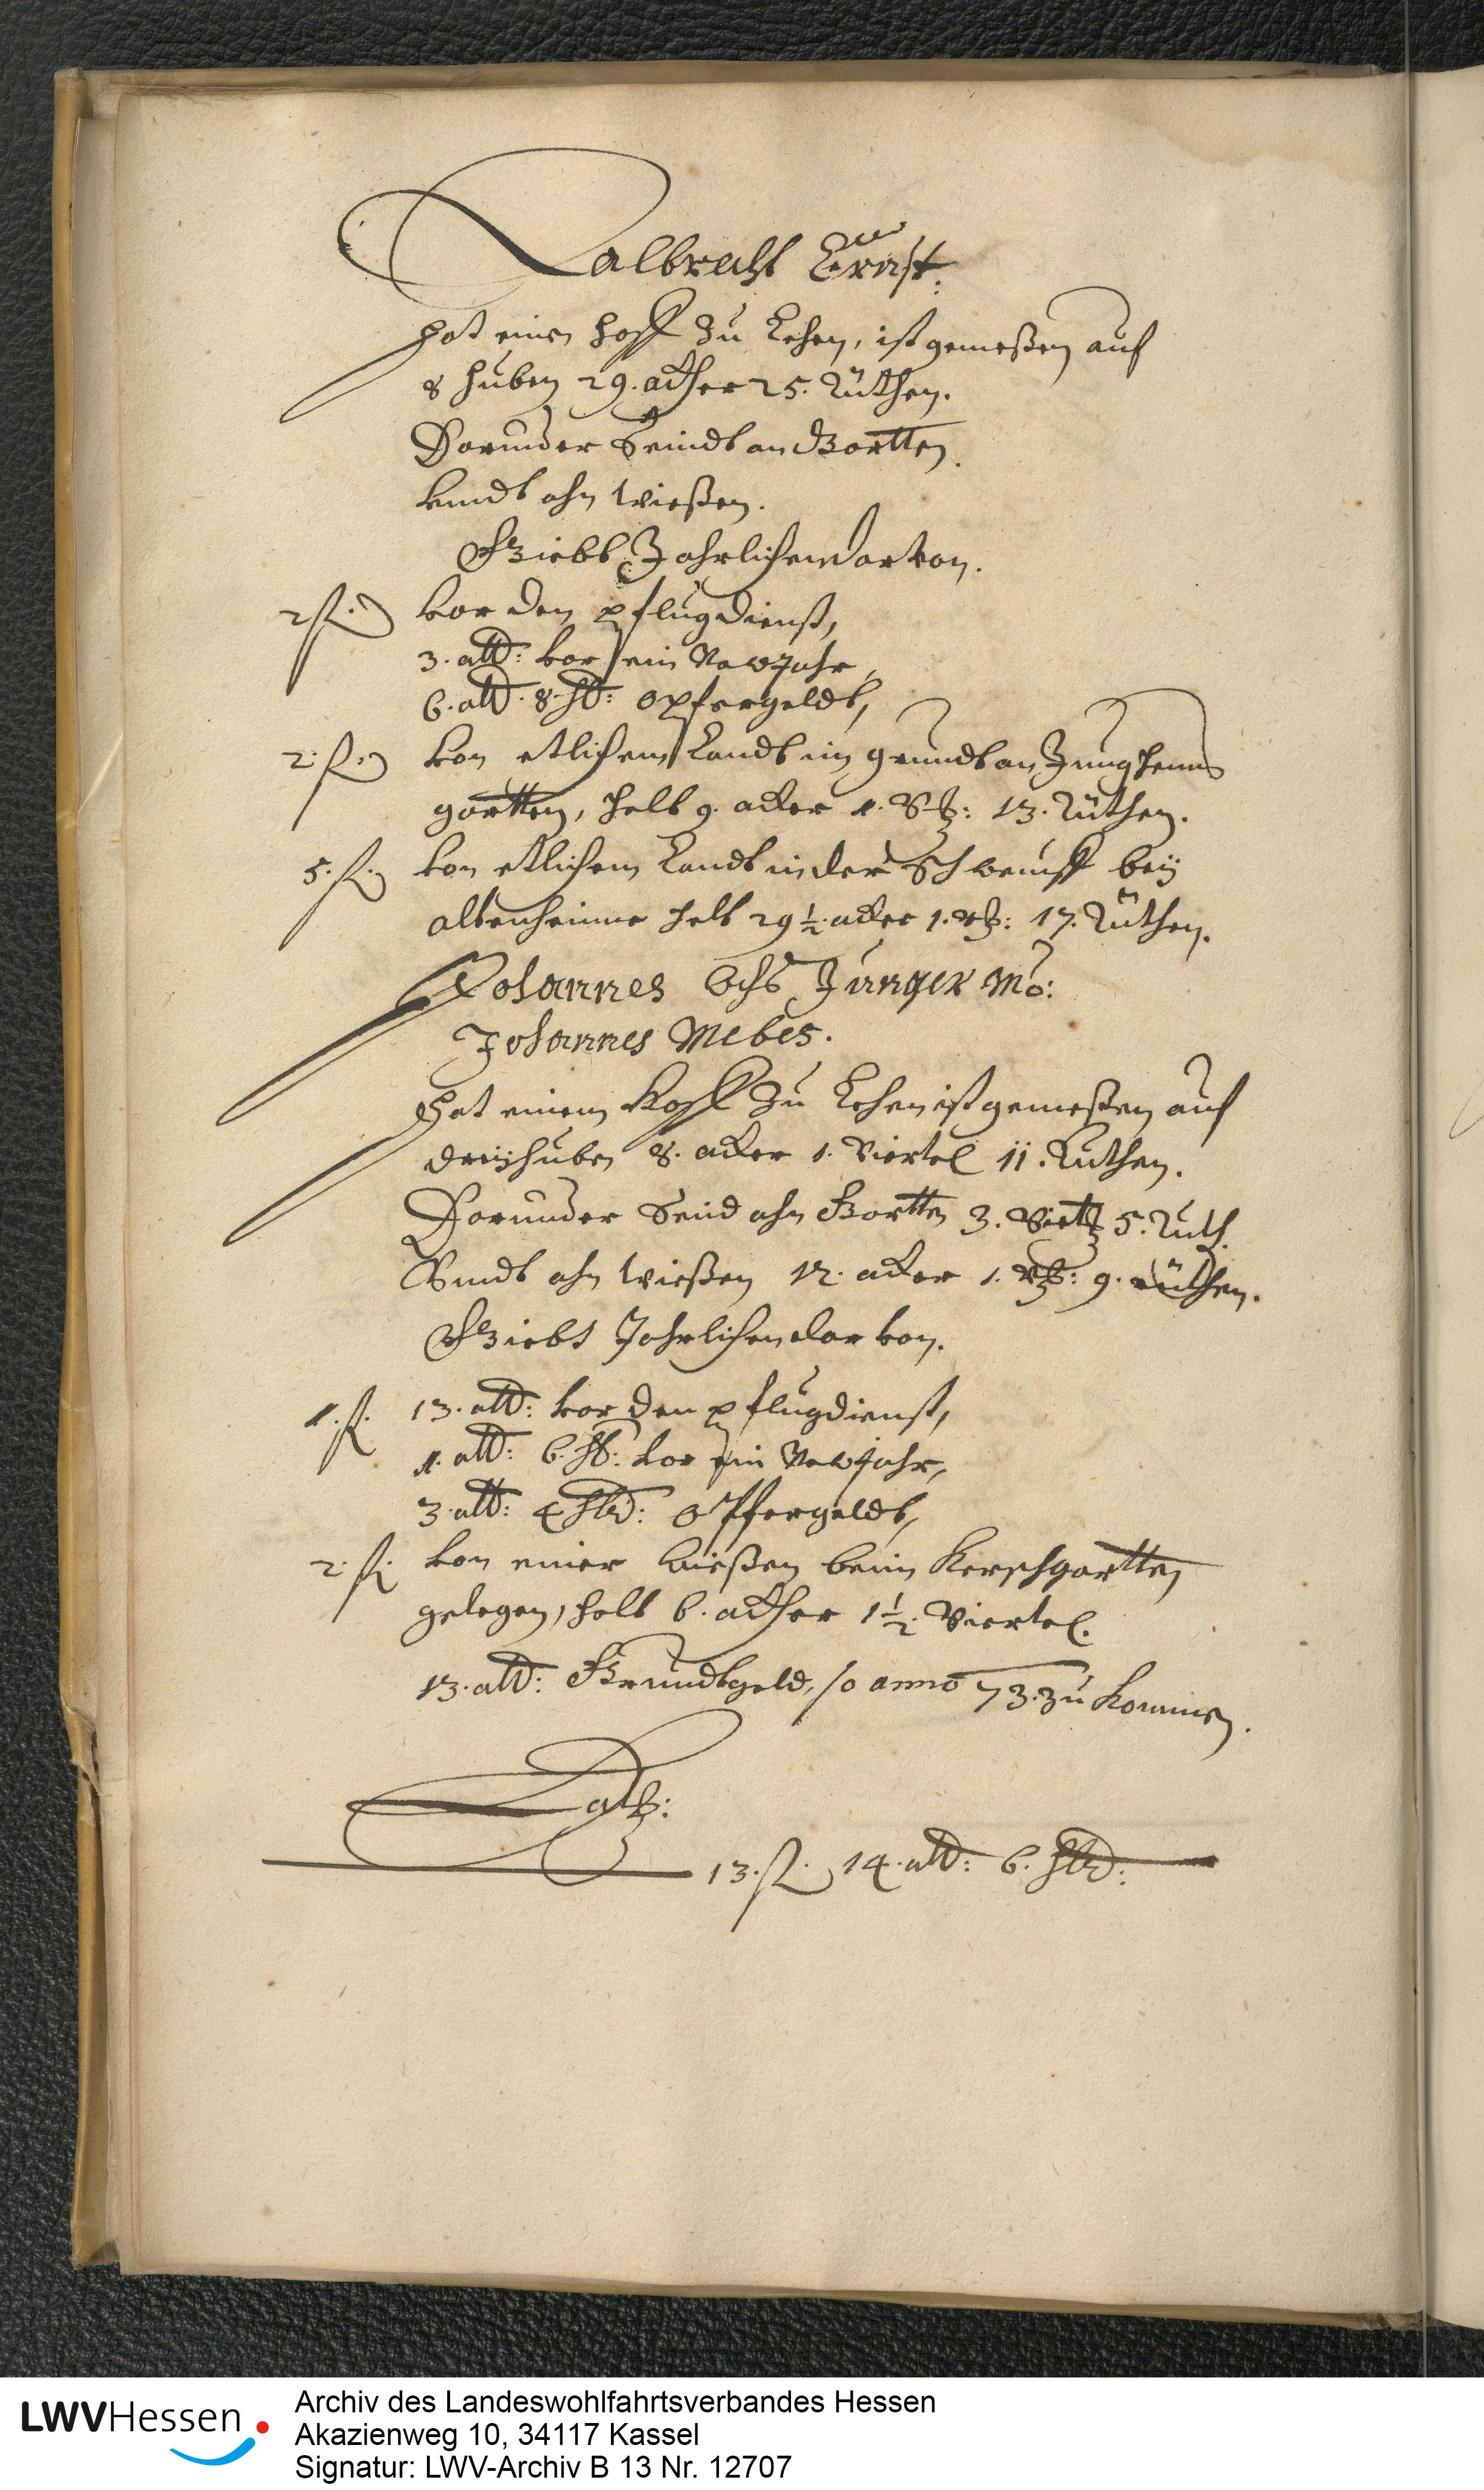 Albrecht Ernst.
Hat einen Hoff zu Lehen, ist gemeßen auf
8 huben 29. acker 25. Ruthen.
Darunder Seindt an Gartten.
Vndt ahn Wießen.
Giebt Jahrlichen darvon.
2 fl. vor den pflugdienst,
3. alb: vor sein Newjahr,
6. alb. 8. hl: opfergeldt,
2. fl. von etlichem Landt im grundt an Junghenns
gartten, helt 9. acker 1. Vtl: 13. Ruthen.
5. fl. von etlichem Landt in der bey
helt 29 ½. acker 1. vtl: 17. Ruthen.
Johannes Ochs Junger Mo:
Johannes Mebes.
Hat einem Hoff zu Lehen ist gemeßen auf
drey huben 8. acker 1. Viertel 11. Ruthen.
Darunder Seind ahn Gartten 3. Viertl 5. Ruth.
Vndt ahn Wießen 12. acker 1. vtl: 9. Ruthen.
Giebt Jahrlichen darvon.
1. fl. 13. alb: vor den pflugdienst,
1. alb: 6. hl: vor sein Newjahr,
3. alb: 4 hlr: opffergeldt,
2. fl. von einer wießen beim Kerschgartten
gelegen, helt 6. acker 1 ½. Viertel.
13. alb: Grundtgeld, so anno 73. zu kommen.
Lats:
13. fl. 14. alb: 6. hlr:
LWVHessen
Archiv des Landeswohlfahrtsverbandes Hessen
Akazienweg 10, 34117 Kassel
Signatur: LWV-Archiv B 13 Nr. 12707